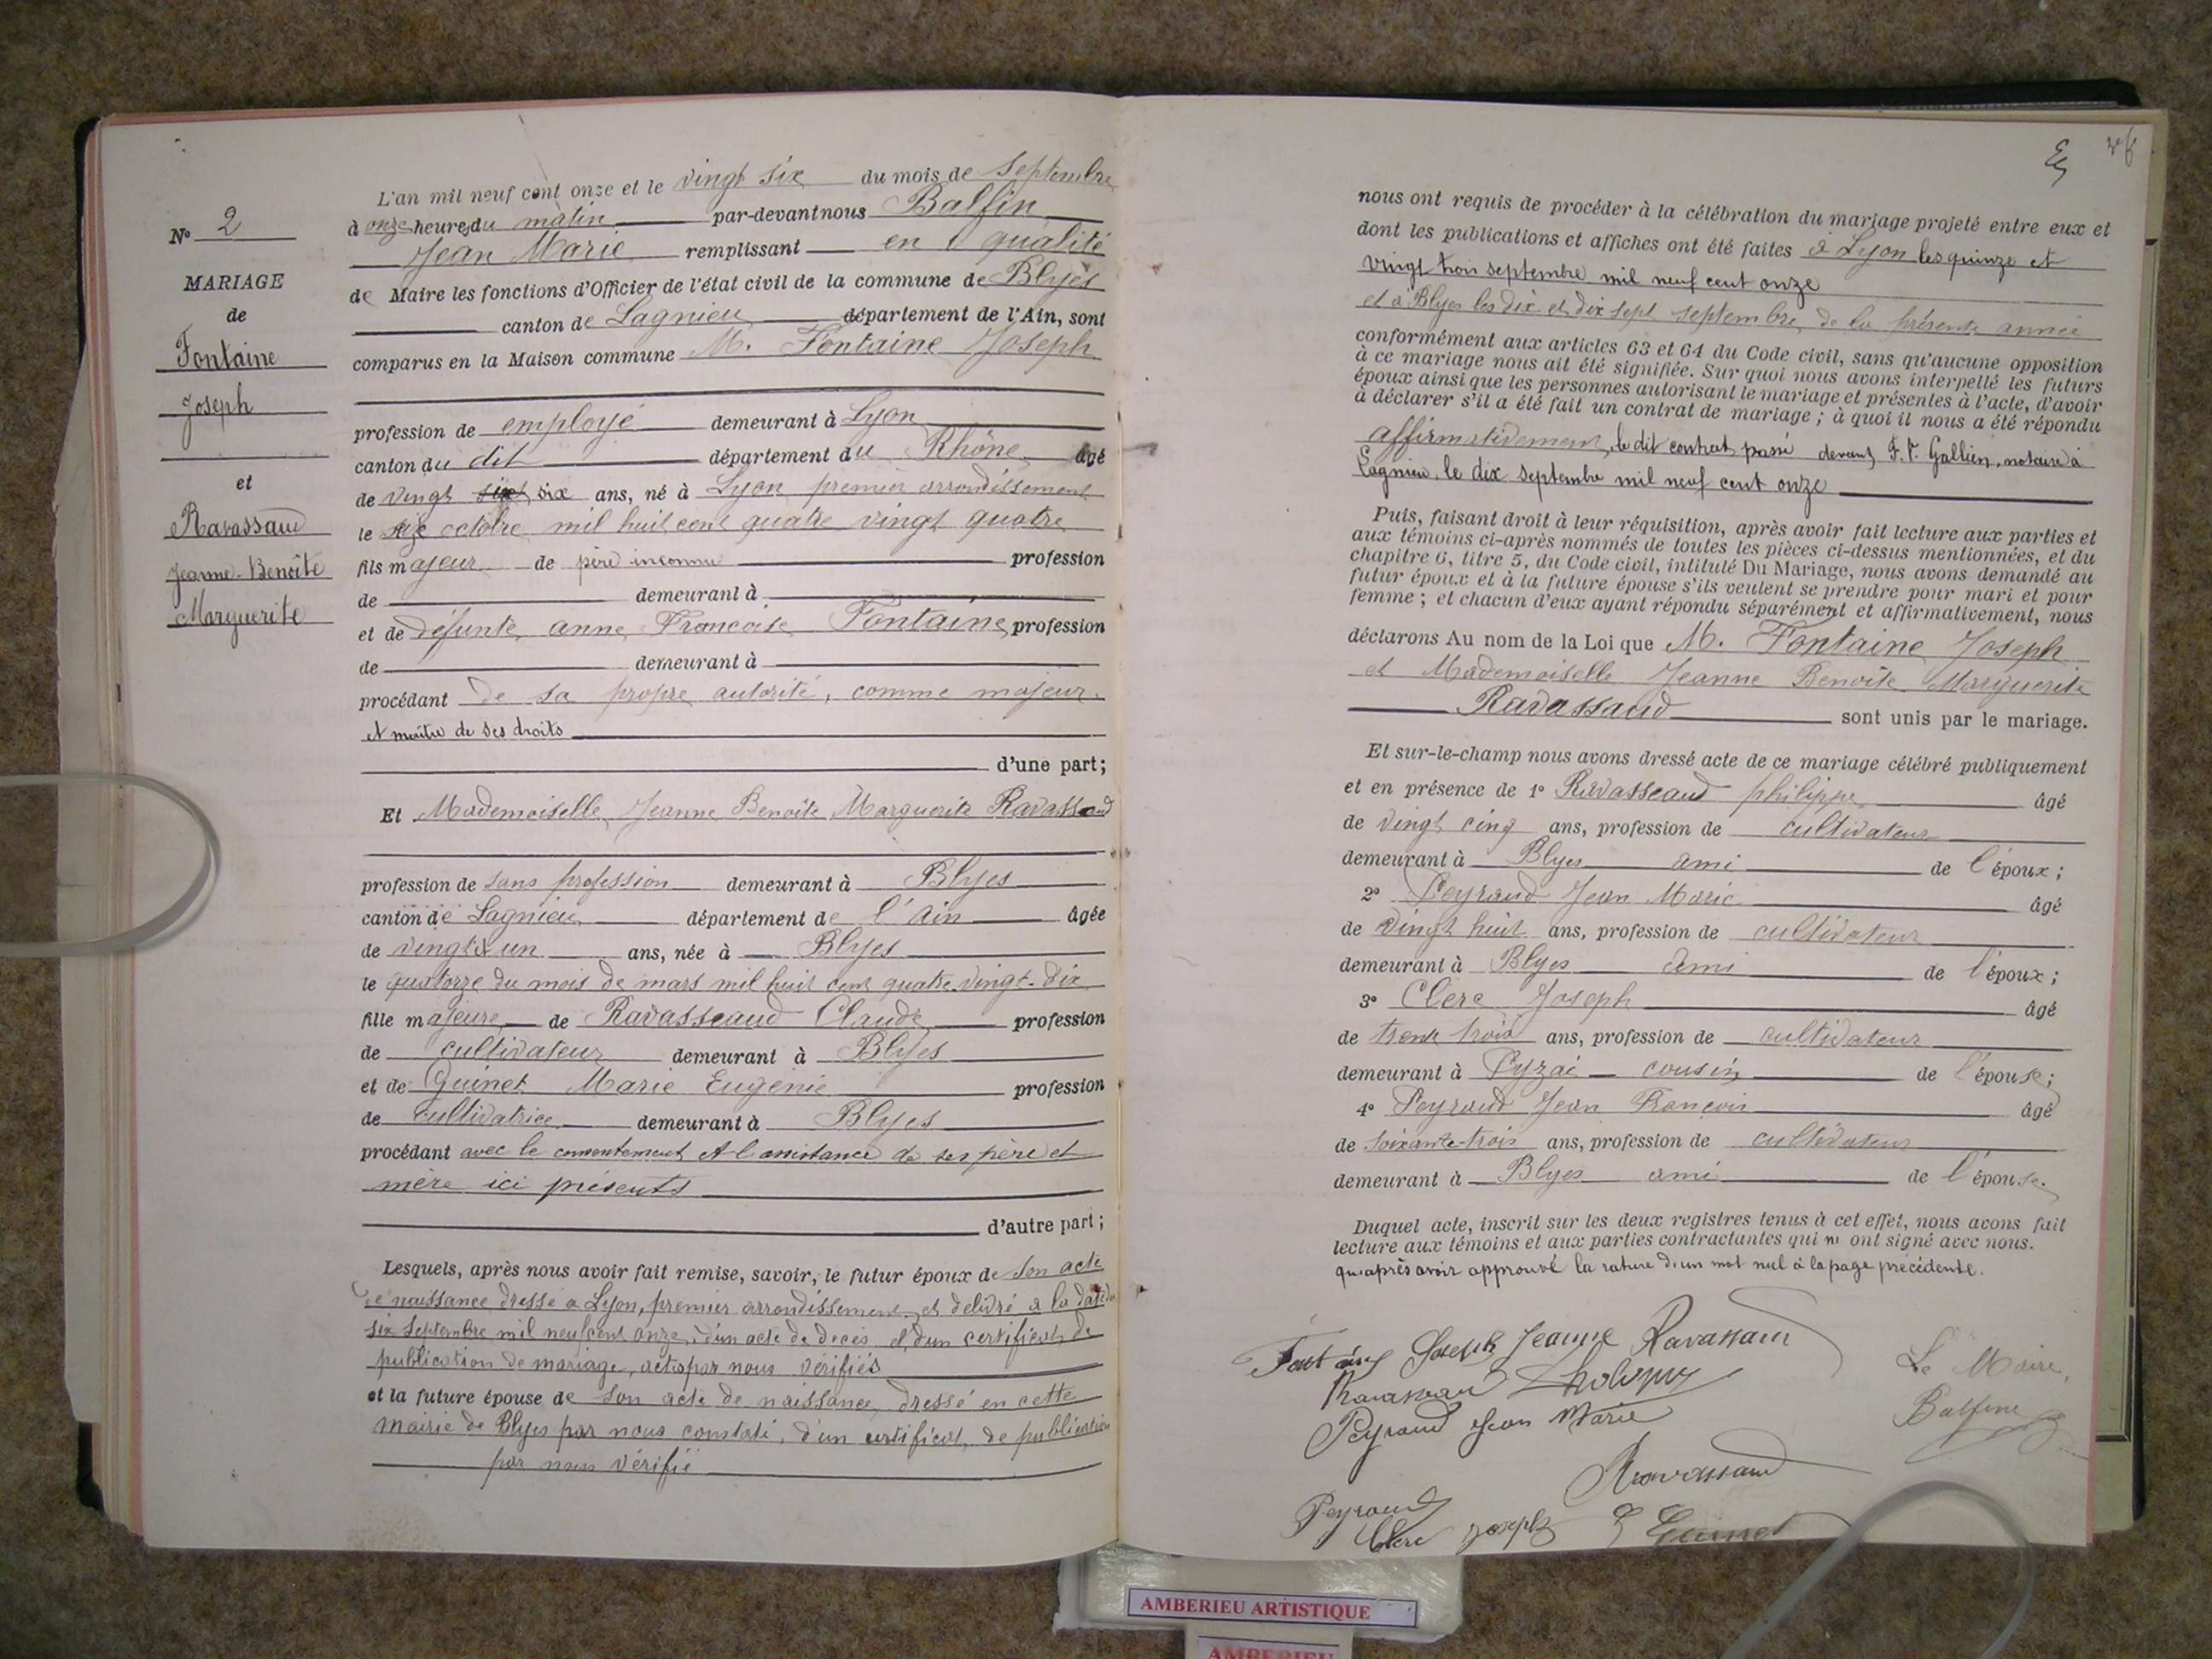 L'an mil neuf cent onze et le vingt six du mois de Septembre
à onze heures du matin par-devant nous Balfin
Jean Marie remplissant en qualité
de Maire les fonctions d'Officier de l'état civil de la commune de Blyes
canton de Lagnieu département de l'Ain, sont
comparus en la Maison commune M. Fontaine Joseph
profession de employé demeurant à Lyon
canton du dit département du Rhône âgé
de vingt six ans, né à Lyon premier arrondissement
le seize octobre mil huit cent quatre vingt quatre
fils majeur de père inconnu profession
de demeurant à
et de défunte anne Françoise Fontaine profession
de demeurant à
procédant de sa propre autorité, comme majeur
et maître de ses droits
d'une part;
Et Mademoiselle Jeanne Benoîte Marguerite Ravassaud
profession de sans profession demeurant à Blyes
canton de Lagnieu département de l'Ain âgée
de vingt & un ans, née à Blyes
le quatorze du mois de mars mil huit cent quatre-vingt-dix
fille majeure de Ravasseaud Claude profession
de cultivateur demeurant à Blyes
et de Guinet Marie Eugénie profession
de cultivatrice demeurant à Blyes
procédant avec le consentement et l'assistance de ses père et
mère ici présents
d'autre part;
Lesquels, après nous avoir fait remise, savoir, le futur époux de son acte
de naissance dressé à Lyon, premier arrondissement et délivré à la date du
six Septembre mil neuf cent onze, d'un acte de décès et d'un certificat de
publication de mariage, actes par nous vérifiés
et la future épouse de son acte de naissance, dressé en cette
mairie de Blyes par nous constaté, d'un certificat de publication
par nous vérifié
No 2
MARIAGE
de
Fontaine
Joseph
et
Ravassaud
Jeanne-Benoîte
Marguerite
nous ont requis de procéder à la célébration du mariage projeté entre eux et
dont les publications et affiches ont été faites à Lyon les quinze et
vingt trois septembre mil neuf cent onze
et à Blyes les dix et dix sept septembre de la présente année
conformément aux articles 63 et 64 du Code civil, sans qu'aucune opposition
à ce mariage nous ait été signifiée. Sur quoi nous avons interpellé les futurs
époux ainsi que les personnes autorisant le mariage et présentes à l'acte, d'avoir
à déclarer s'il a été fait un contrat de mariage; à quoi il nous a été répondu
affirmativement, le dit contrat passé devant F. V. Gallien, notaire à
Lagnieu, le dix septembre mil neuf cent onze
Puis, faisant droit à leur réquisition, après avoir fait lecture aux parties et
aux témoins ci-après nommés de toutes les pièces ci-dessus mentionnées, et du
chapitre 6, titre 5, du Code civil, intitulé Du Mariage, nous avons demandé au
futur époux et à la future épouse s'ils veulent se prendre pour mari et pour
femme; et chacun d'eux ayant répondu séparément et affirmativement, nous
déclarons Au nom de la Loi que M. Fontaine Joseph
et Mademoiselle Jeanne Benoîte Marguerite
Ravassaud sont unis par le mariage.
Et sur-le-champ nous avons dressé acte de ce mariage célébré publiquement
et en présence de 1o Ravasseaud philippe âgé
de vingt cinq ans, profession de cultivateur
demeurant à Blyes ami de l'époux;
2o Peyraud Jean Marie âgé
de vingt huit ans, profession de cultivateur
demeurant à Blyes ami de l'époux;
3o Clerc Joseph âgé
de trente trois ans, profession de cultivateur
demeurant à Pyzai cousin de l'épouse;
4o Peyraud Jean François âgé
de soixante-trois ans, profession de cultivateur
demeurant à Blyes ami de l'épouse.
Duquel acte, inscrit sur les deux registres tenus à cet effet, nous avons fait
lecture aux témoins et aux parties contractantes qui ont signé avec nous.
qu'après avoir approuvé la rature d'un mot nul à la page précédente.
Fontaine Joseph Jeanne Ravassaud
Ravasseaud Philippe
Le Maire,
Peyraud Jean Marie
Balfin
Ravassaud
Peyraud
Clerc Joseph E Guinet
AMBERIEU ARTISTIQUE
AMBERIEU